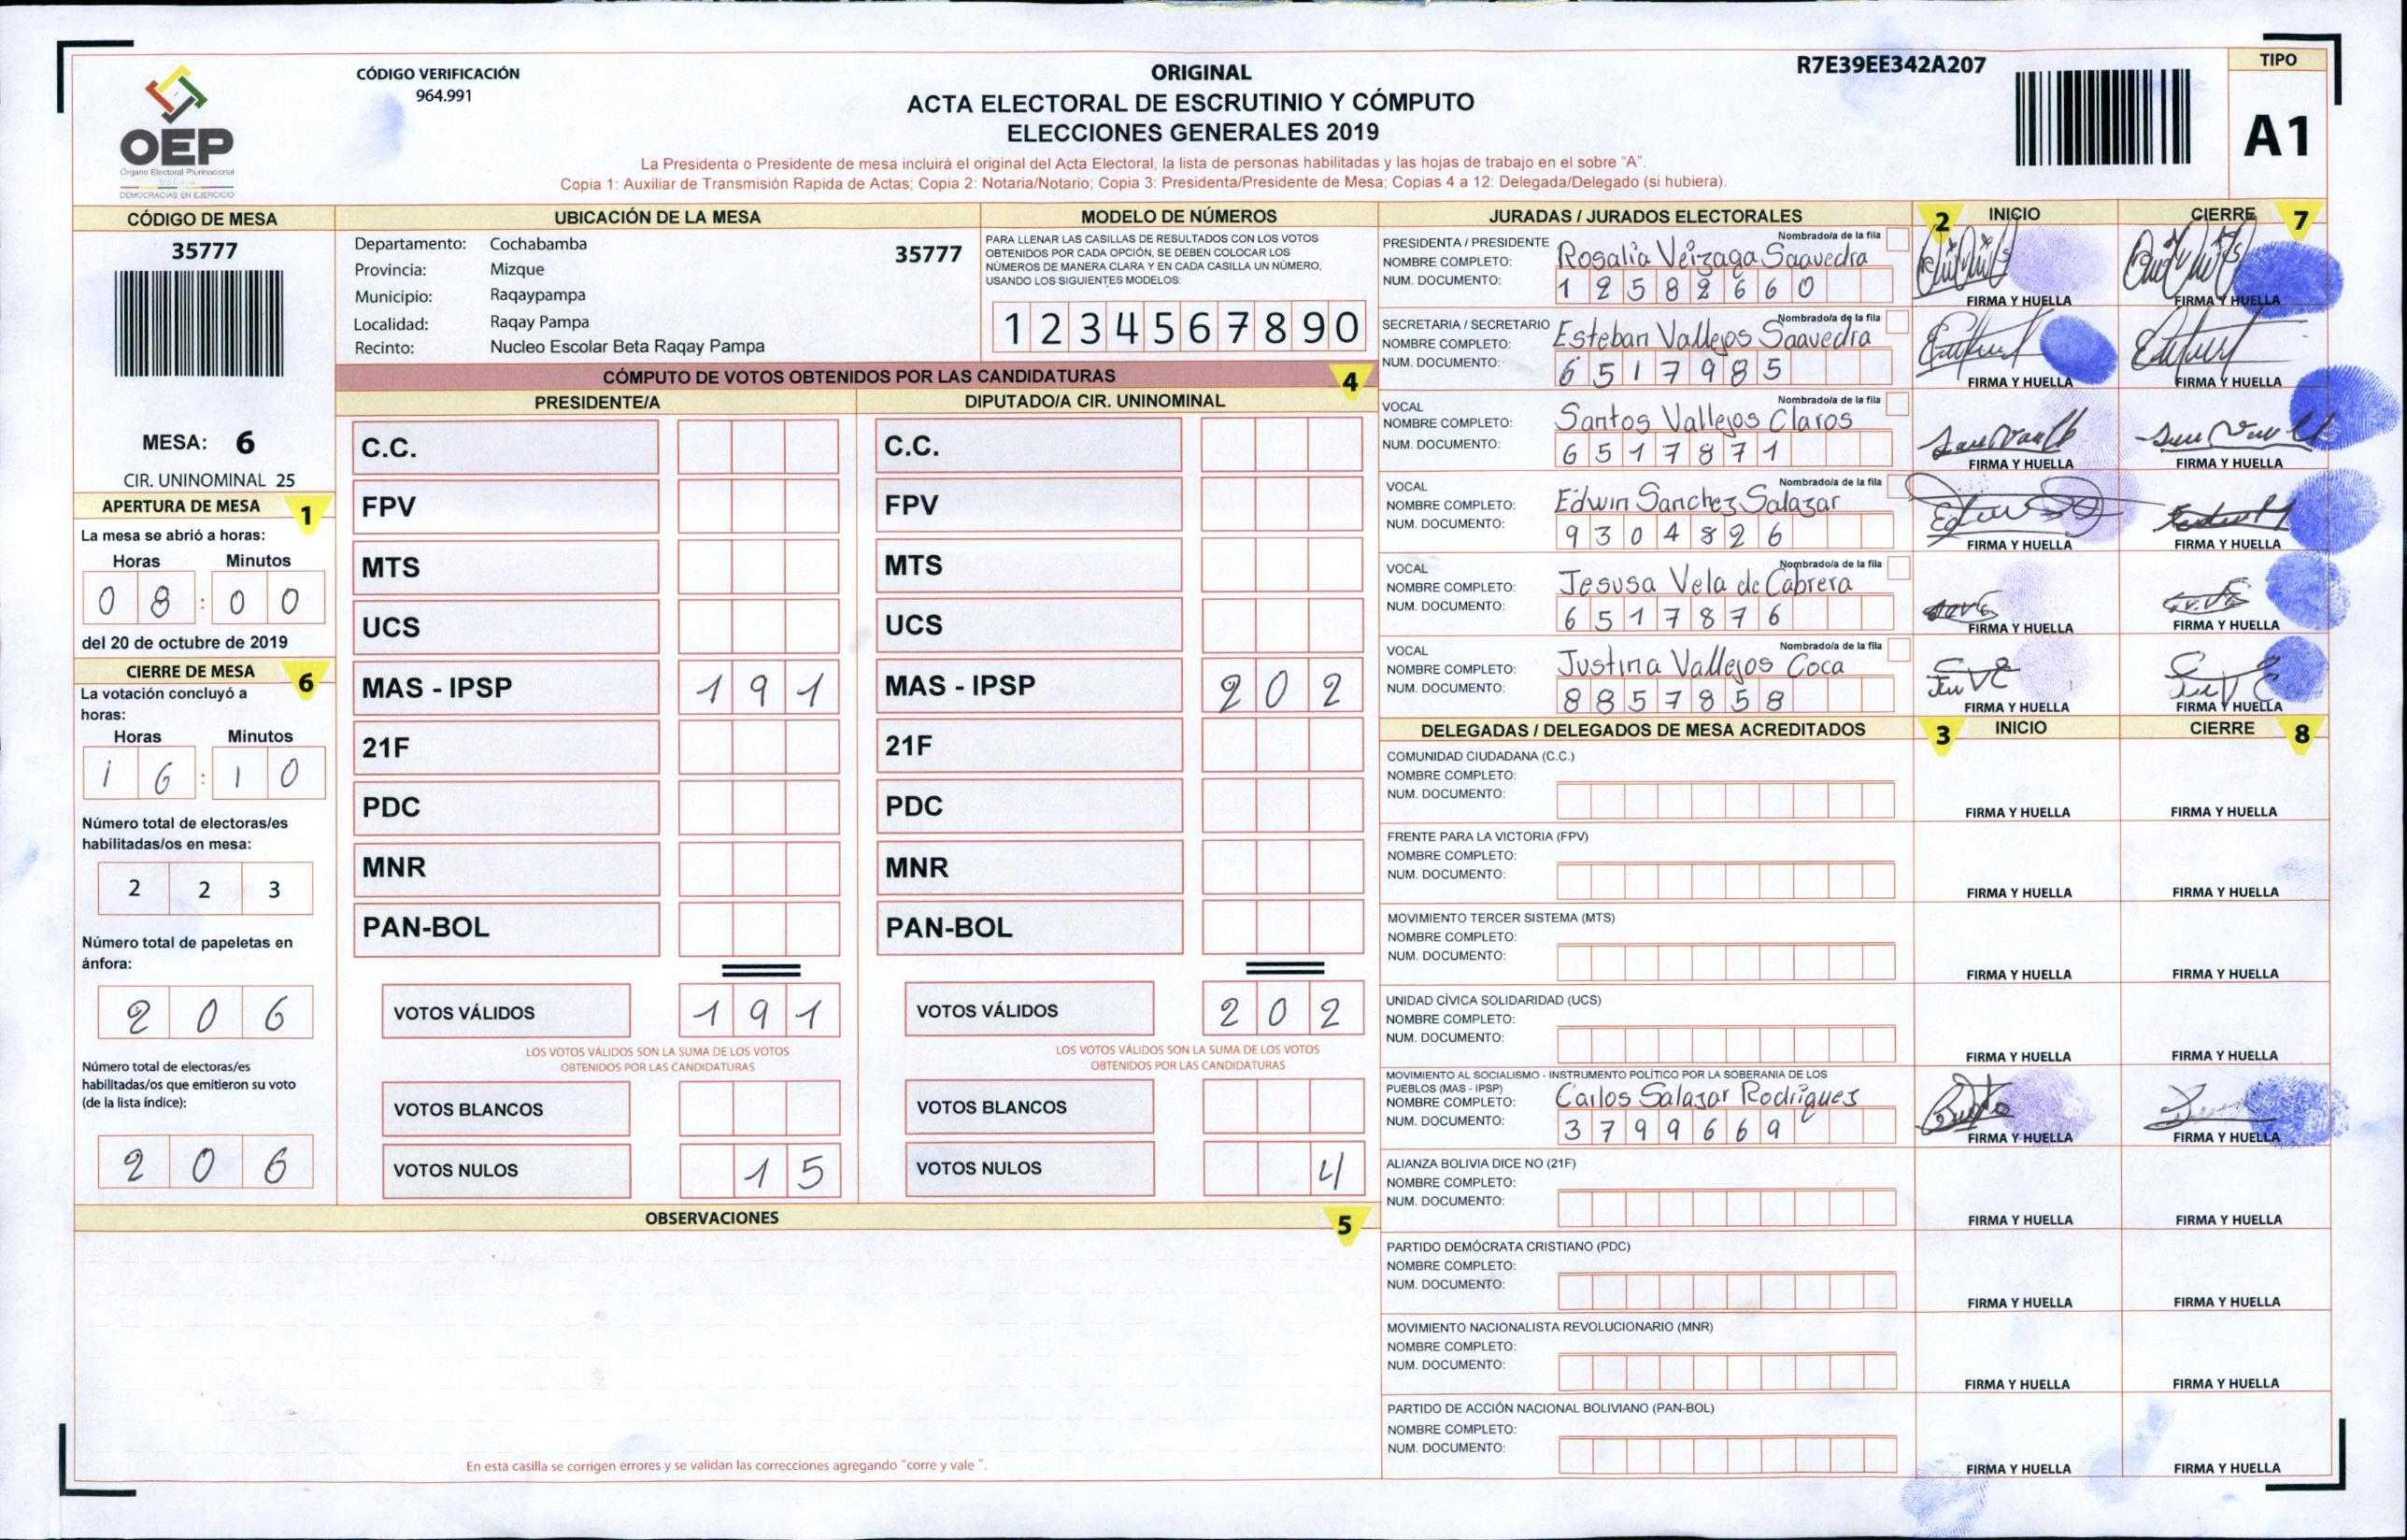 OEP
Órgano Electoral Plurinacional
Bolivia
DEMOCRACIAS EN EJERCICIO
CÓDIGO VERIFICACIÓN
964.991
ORIGINAL
ACTA ELECTORAL DE ESCRUTINIO Y CÓMPUTO
ELECCIONES GENERALES 2019
La Presidenta o Presidente de mesa incluirá el original del Acta Electoral, la lista de personas habilitadas y las hojas de trabajo en el sobre "A".
Copia 1: Auxiliar de Transmisión Rapida de Actas; Copia 2: Notaria/Notario; Copia 3: Presidenta/Presidente de Mesa; Copias 4 a 12: Delegada/Delegado (si hubiera).
R7E39EE342A207
TIPO
A1
CÓDIGO DE MESA
35777
MESA: 6
CIR. UNINOMINAL 25
APERTURA DE MESA 1
La mesa se abrió a horas:
Horas Minutos
0 8 : 0 0
del 20 de octubre de 2019
CIERRE DE MESA 6
La votación concluyó a
horas:
Horas Minutos
1 6 : 1 0
Número total de electoras/es
habilitadas/os en mesa:
2 2 3
Número total de papeletas en
ánfora:
2 0 6
Número total de electoras/es
habilitadas/os que emitieron su voto
(de la lista índice):
2 0 6
UBICACIÓN DE LA MESA
Departamento: Cochabamba 35777
Provincia: Mizque
Municipio: Raqaypampa
Localidad: Raqay Pampa
Recinto: Nucleo Escolar Beta Raqay Pampa
MODELO DE NÚMEROS
PARA LLENAR LAS CASILLAS DE RESULTADOS CON LOS VOTOS
OBTENIDOS POR CADA OPCIÓN, SE DEBEN COLOCAR LOS
NÚMEROS DE MANERA CLARA Y EN CADA CASILLA UN NÚMERO,
USANDO LOS SIGUIENTES MODELOS:
1 2 3 4 5 6 7 8 9 0
CÓMPUTO DE VOTOS OBTENIDOS POR LAS CANDIDATURAS 4
PRESIDENTE/A
C.C.
FPV
MTS
UCS
MAS - IPSP 1 9 1
21F
PDC
MNR
PAN-BOL
VOTOS VÁLIDOS 1 9 1
LOS VOTOS VÁLIDOS SON LA SUMA DE LOS VOTOS
OBTENIDOS POR LAS CANDIDATURAS
VOTOS BLANCOS
VOTOS NULOS 1 5
DIPUTADO/A CIR. UNINOMINAL
C.C.
FPV
MTS
UCS
MAS - IPSP 2 0 2
21F
PDC
MNR
PAN-BOL
VOTOS VÁLIDOS 2 0 2
LOS VOTOS VÁLIDOS SON LA SUMA DE LOS VOTOS
OBTENIDOS POR LAS CANDIDATURAS
VOTOS BLANCOS
VOTOS NULOS 4
OBSERVACIONES 5
En esta casilla se corrigen errores y se validan las correcciones agregando "corre y vale ".
JURADAS / JURADOS ELECTORALES 2 INICIO CIERRE 7
PRESIDENTA / PRESIDENTE Nombrado/a de la fila
NOMBRE COMPLETO: Rosalia Veizaga Saavedra
NUM. DOCUMENTO: 1 2 5 8 2 6 6 0
FIRMA Y HUELLA FIRMA Y HUELLA
SECRETARIA / SECRETARIO Nombrado/a de la fila
NOMBRE COMPLETO: Esteban Vallejos Saavedra
NUM. DOCUMENTO: 6 5 1 7 9 8 5
FIRMA Y HUELLA FIRMA Y HUELLA
VOCAL Nombrado/a de la fila
NOMBRE COMPLETO: Santos Vallejos Claros
NUM. DOCUMENTO: 6 5 1 7 8 7 1
FIRMA Y HUELLA FIRMA Y HUELLA
VOCAL Nombrado/a de la fila
NOMBRE COMPLETO: Edwin Sanchez Salazar
NUM. DOCUMENTO: 9 3 0 4 8 2 6
FIRMA Y HUELLA FIRMA Y HUELLA
VOCAL Nombrado/a de la fila
NOMBRE COMPLETO: Jesusa Vela de Cabrera
NUM. DOCUMENTO: 6 5 1 7 8 7 6
FIRMA Y HUELLA FIRMA Y HUELLA
VOCAL Nombrado/a de la fila
NOMBRE COMPLETO: Justina Vallejos Coca
NUM. DOCUMENTO: 8 8 5 7 8 5 8
FIRMA Y HUELLA FIRMA Y HUELLA
DELEGADAS / DELEGADOS DE MESA ACREDITADOS 3 INICIO CIERRE 8
COMUNIDAD CIUDADANA (C.C.)
NOMBRE COMPLETO:
NUM. DOCUMENTO:
FIRMA Y HUELLA FIRMA Y HUELLA
FRENTE PARA LA VICTORIA (FPV)
NOMBRE COMPLETO:
NUM. DOCUMENTO:
FIRMA Y HUELLA FIRMA Y HUELLA
MOVIMIENTO TERCER SISTEMA (MTS)
NOMBRE COMPLETO:
NUM. DOCUMENTO:
FIRMA Y HUELLA FIRMA Y HUELLA
UNIDAD CÍVICA SOLIDARIDAD (UCS)
NOMBRE COMPLETO:
NUM. DOCUMENTO:
FIRMA Y HUELLA FIRMA Y HUELLA
MOVIMIENTO AL SOCIALISMO - INSTRUMENTO POLÍTICO POR LA SOBERANIA DE LOS
PUEBLOS (MAS - IPSP)
NOMBRE COMPLETO: Carlos Salazar Rodriguez
NUM. DOCUMENTO: 3 7 9 9 6 6 9
FIRMA Y HUELLA FIRMA Y HUELLA
ALIANZA BOLIVIA DICE NO (21F)
NOMBRE COMPLETO:
NUM. DOCUMENTO:
FIRMA Y HUELLA FIRMA Y HUELLA
PARTIDO DEMÓCRATA CRISTIANO (PDC)
NOMBRE COMPLETO:
NUM. DOCUMENTO:
FIRMA Y HUELLA FIRMA Y HUELLA
MOVIMIENTO NACIONALISTA REVOLUCIONARIO (MNR)
NOMBRE COMPLETO:
NUM. DOCUMENTO:
FIRMA Y HUELLA FIRMA Y HUELLA
PARTIDO DE ACCIÓN NACIONAL BOLIVIANO (PAN-BOL)
NOMBRE COMPLETO:
NUM. DOCUMENTO:
FIRMA Y HUELLA FIRMA Y HUELLA